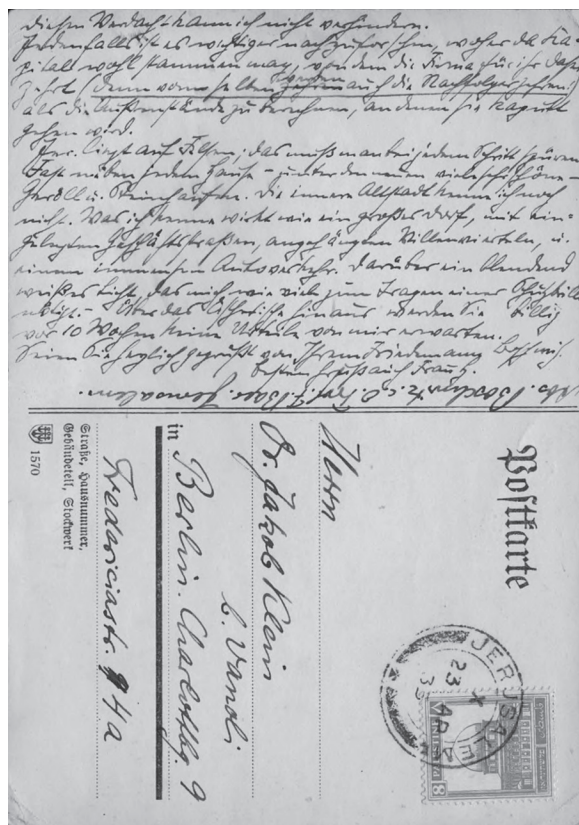 diesen Verdacht kann ich nicht verhindern.
Jedenfalls ist es wichtiger nachzuforschen, woher das Ka-
pital wohl stammen mag, von dem die Firma
zehrt (denn vom selben werden zehren auch die Nachfolger
als die Außenstände zu berechnen, an denen sie kaputt
gehen wird.
Jer. liegt auf Felsen; das muß man bei jedem Schritt spüren
Fast neben jedem Hause – unter den neuen viele schöne –
Geröll u. Steinhaufen. Die innere Altstadt kenne ich noch
nicht. Was ich kenne wirkt wie ein großes Dorf, mit ein-
gelegten Geschäftsstraßen, angehängten Villenvierteln, u.
einem immensen Autoverkehr. Darüber ein blendend
weißes Licht, das mich wie viele zum Tragen einer Schutzbrille
nötigt. – Über das Ästhetische hinaus werden Sie billig
vor 10 Wochen keine Urteile von mir erwarten.
Seien Sie herzlich gegrüßt von Ihrem Friedemann
besten Gruß auch Frau
Jerusalem.
Postkarte
JERUSALEM
23
8
Herrn
Dr. Jakob Klein
b. Vandi
in Berlin-Charlottbg. 9
Fredericiastr. 4a
Straße, Hausnummer,
Gebäudeteil, Stockwerk
1570